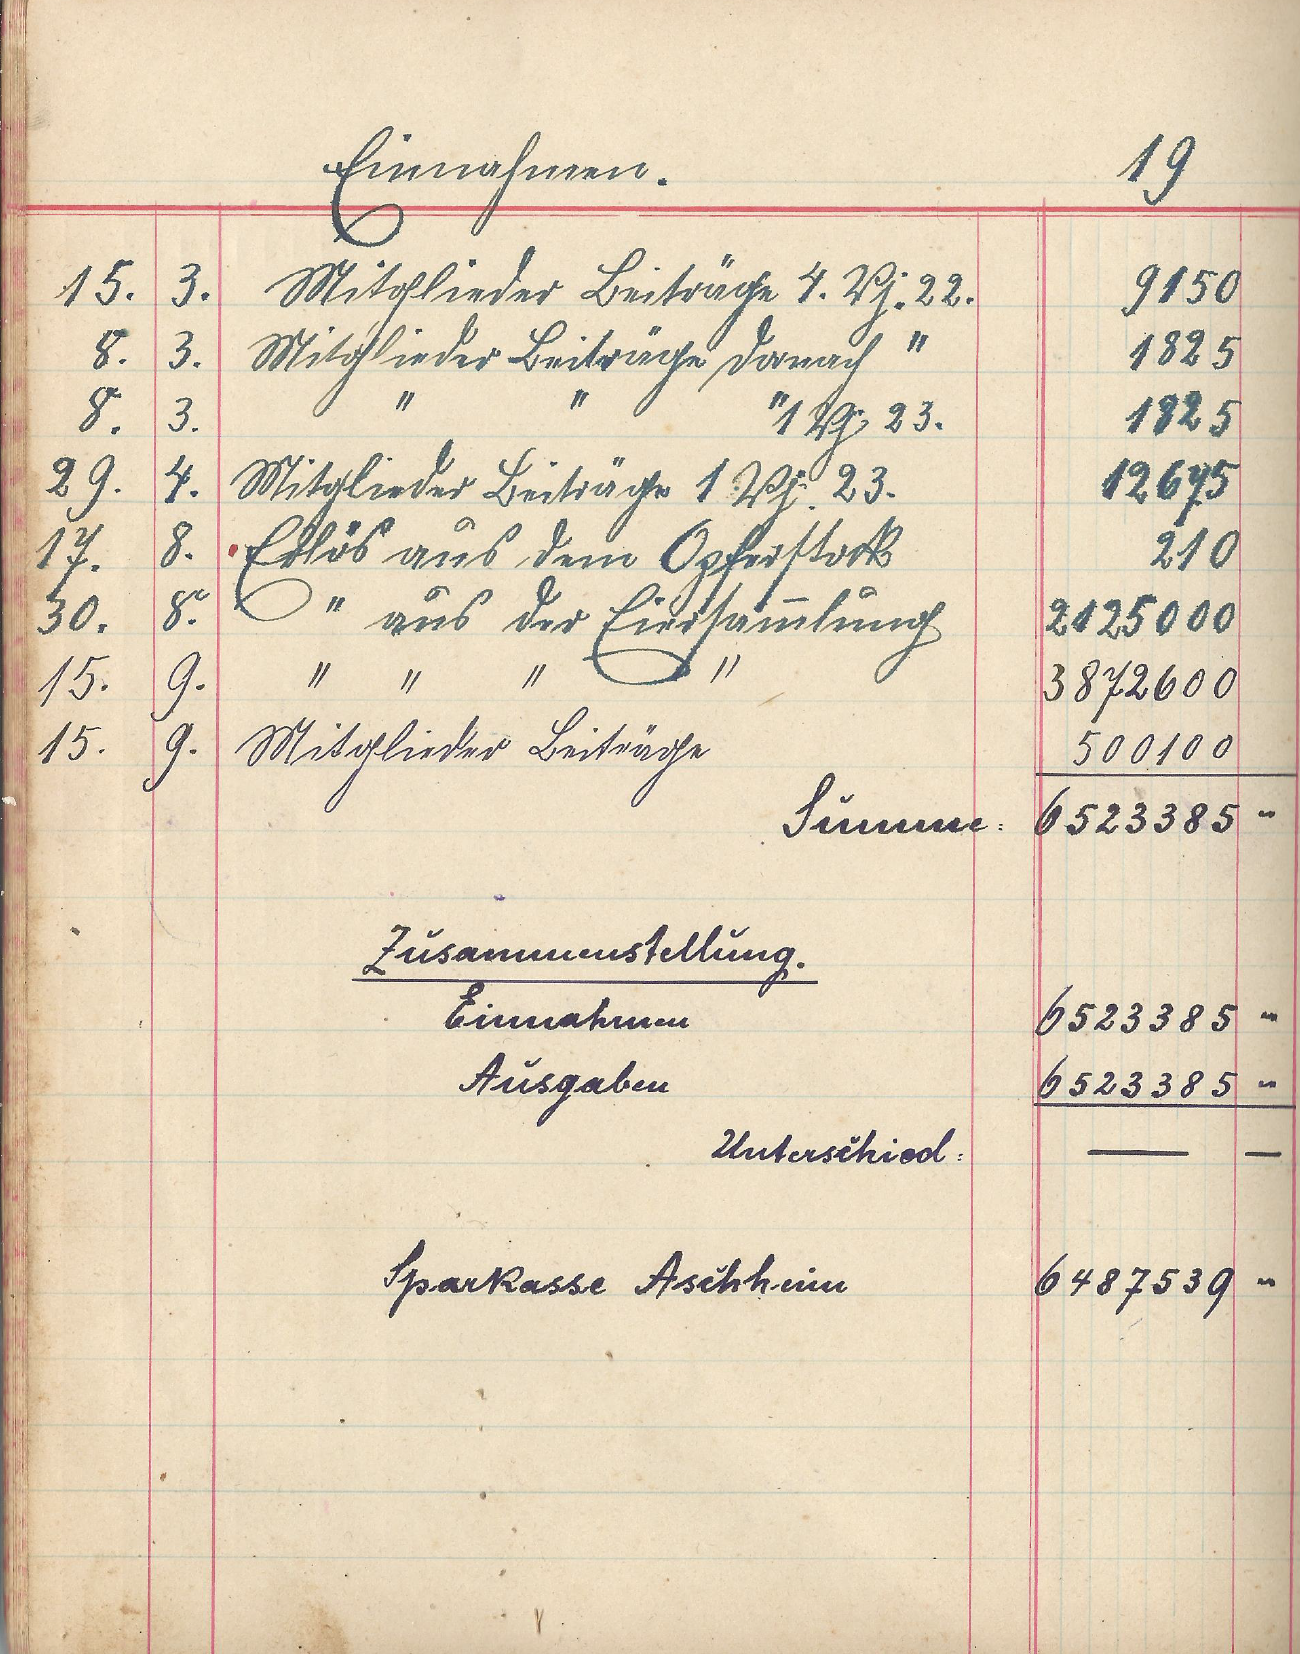 Einnahmen. 19
15. 3. Mitglieder Beiträge 4. Vj. 22. 9150
8. 3. Mitglieder Beiträge Dornach " 1825
8. 3. " " " 1 Vj. 23. 1825
29. 4. Mitglieder Beiträge 1 Vj. 23. 12675
17. 8. Erlös aus dem Opferstock 210
30. 8. " aus der Eiersam̄lung 2125000
15. 9. " " " " 3872600
15. 9. Mitglieder Beiträge 500100
Summe: 6523385 "
Zusammenstellung.
Einnahmen 6523385 "
Ausgaben 6523385 "
Unterschied: — —
Sparkasse Aschheim 6487539 "